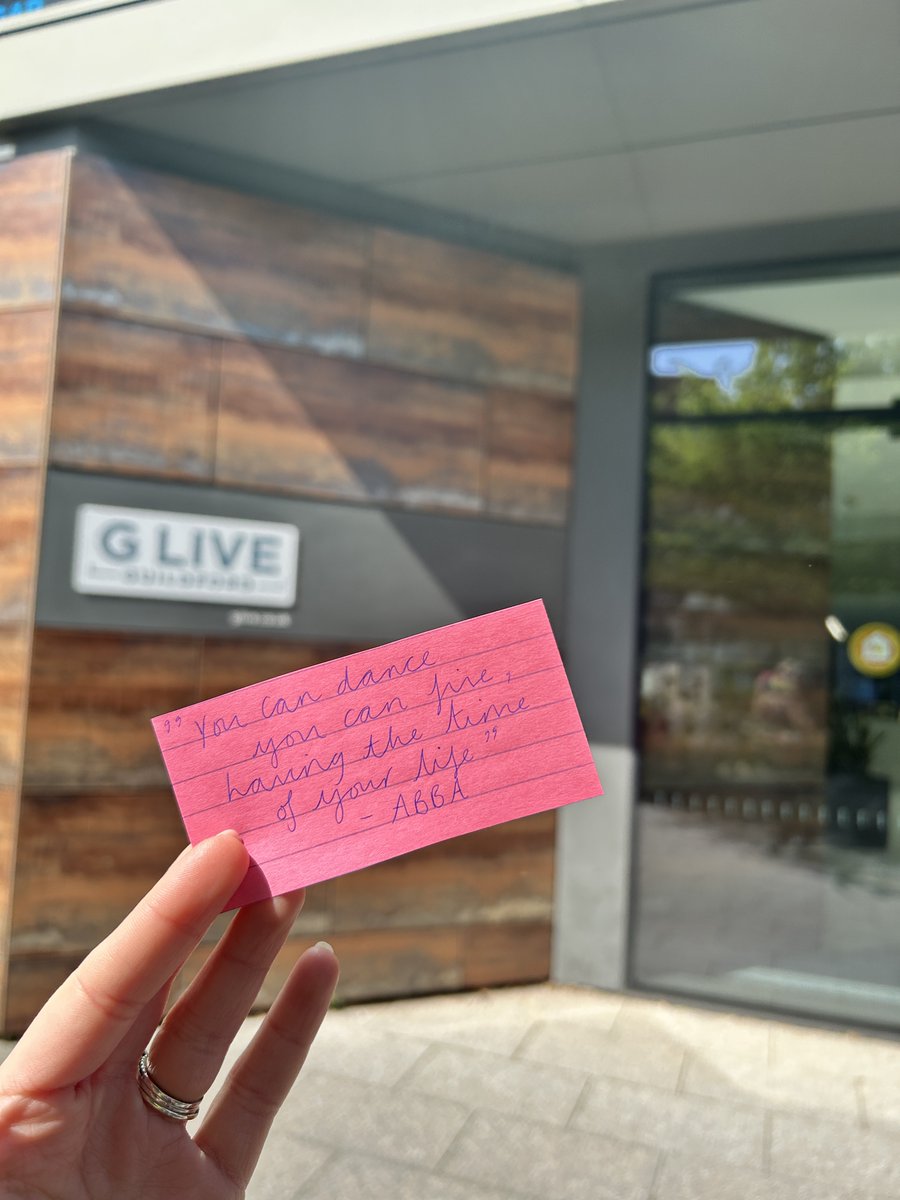 G LIVE
GUILDFORD
"You can dance
you can jive,
having the time
of your life"
- ABBA